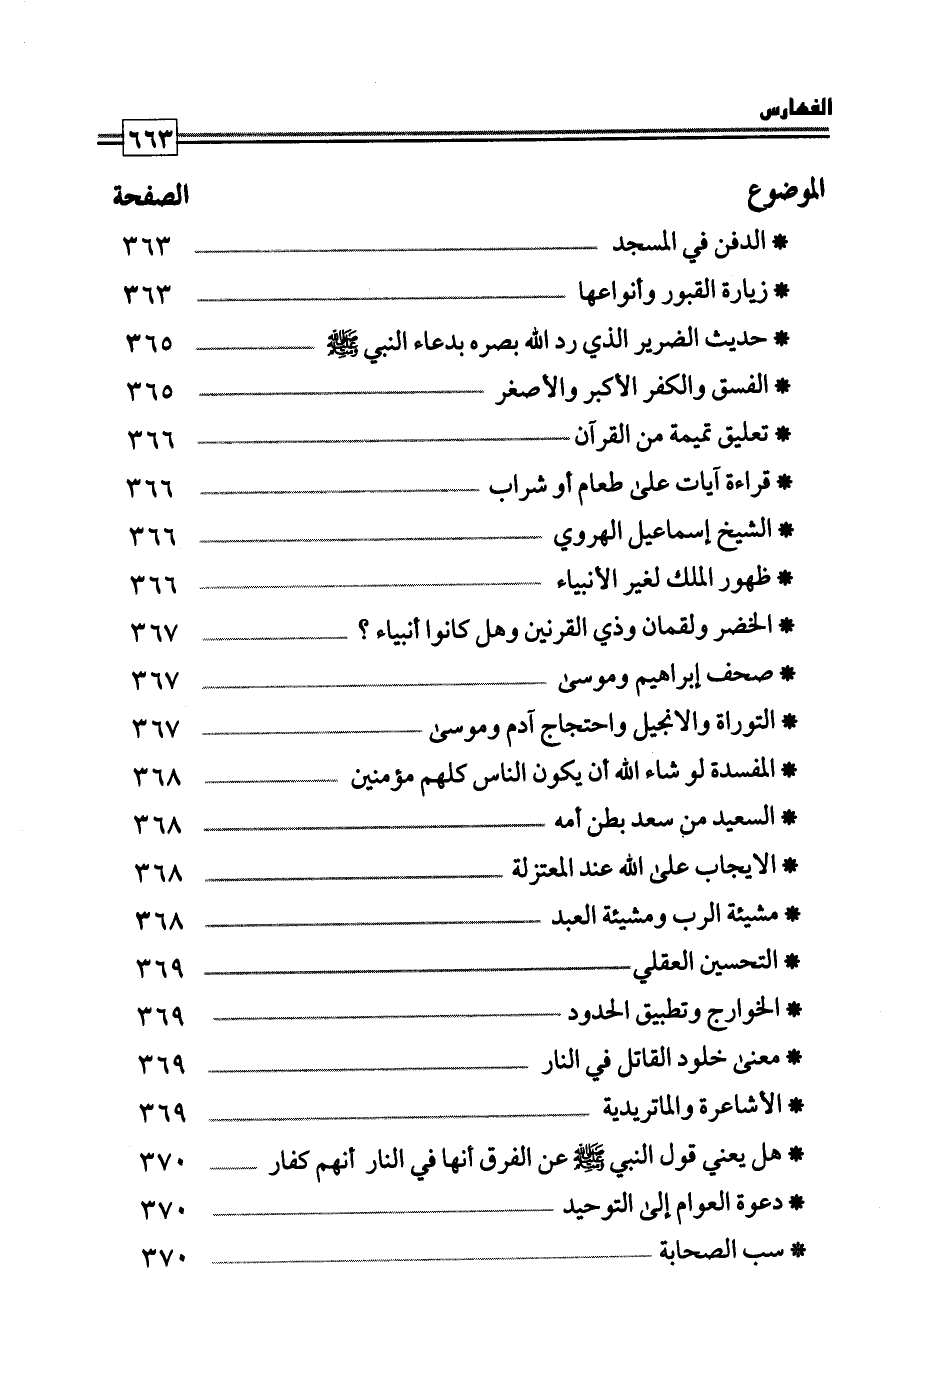 الفهارس
٦٦٣
الموضوع الصفحة
* الدفن في المسجد ٣٦٣
* زيارة القبور وأنواعها ٣٦٣
* حديث الضرير الذي رد الله بصره بدعاء النبي ﷺ ٣٦٥
* الفسق والكفر الأكبر والأصغر ٣٦٥
* تعليق تميمة من القرآن ٣٦٦
* قراءة آيات على طعام أو شراب ٣٦٦
* الشيخ إسماعيل الهروي ٣٦٦
* ظهور الملك لغير الأنبياء ٣٦٦
* الخضر ولقمان وذي القرنين وهل كانوا أنبياء ؟ ٣٦٧
* صحف إبراهيم وموسى ٣٦٧
* التوراة والانجيل واحتجاج آدم وموسى ٣٦٧
* المفسدة لو شاء الله أن يكون الناس كلهم مؤمنين ٣٦٨
* السعيد من سعد بطن أمه ٣٦٨
* الايجاب على الله عند المعتزلة ٣٦٨
* مشيئة الرب ومشيئة العبد ٣٦٨
* التحسين العقلي ٣٦٩
* الخوارج وتطبيق الحدود ٣٦٩
* معنى خلود القاتل في النار ٣٦٩
* الأشاعرة والماتريدية ٣٦٩
* هل يعني قول النبي ﷺ عن الفرق أنها في النار أنهم كفار ٣٧٠
* دعوة العوام إلى التوحيد ٣٧٠
* سب الصحابة ٣٧٠